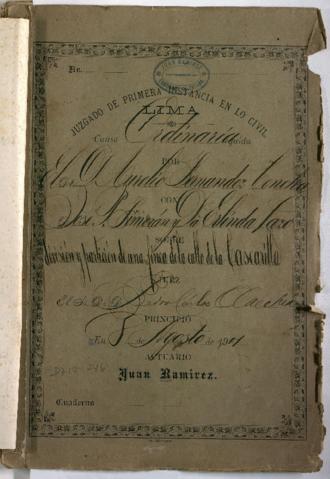 No.
JUAN RAMIREZ
JUZGADO DE PRIMERA INSTANCIA EN LO CIVIL
LIMA
Causa Ordinaria seguida
POR
El Dr. D. Aurelio Fernandez Concha
CON
José P. Jimenez y Da. Erlinda Lazo
SOBRE
division y particion de una finca de la calle de la Cascarilla
JUEZ
El S. D. D. Pedro Carlos
PRINCIPIÓ
En 5 de Agosto de 1901
ACTUARIO
Juan Ramirez.
Cuaderno